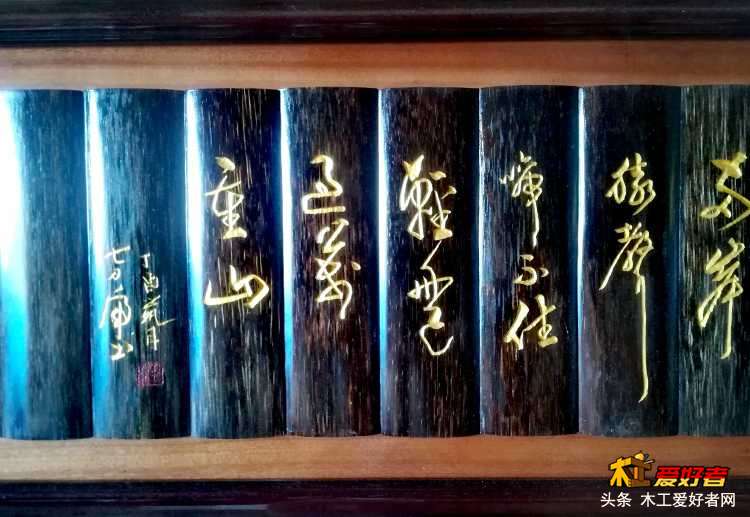 两岸
猿聲
啼不住
輕舟已
過萬
重山
丁酉 月
木工爱好者
头条 木工爱好者网